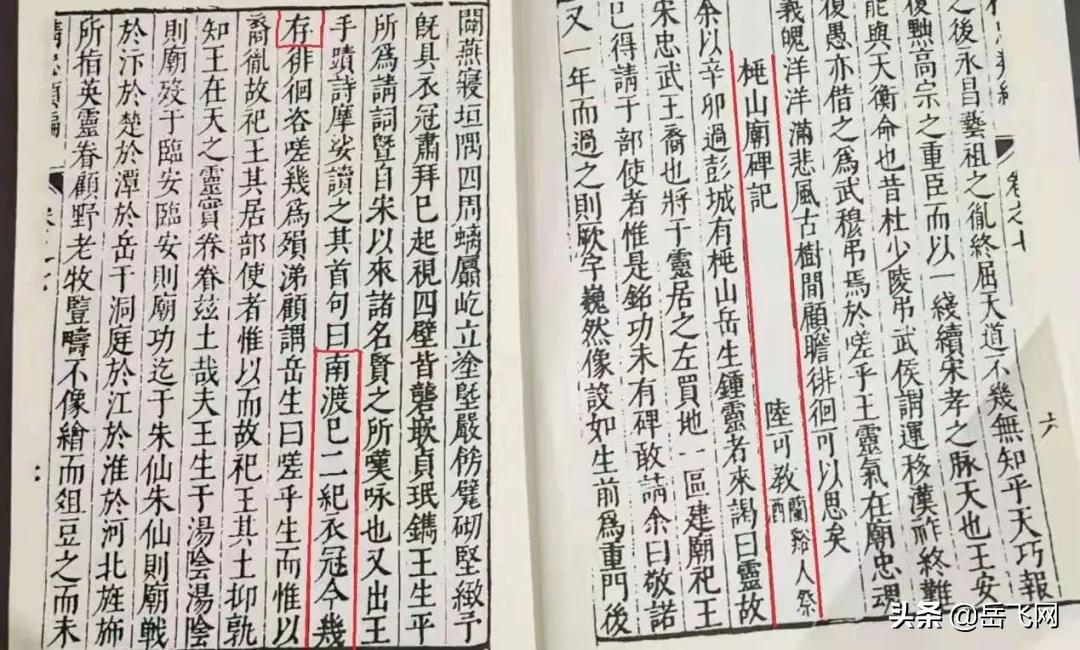 卷之七
六
之後永昌藝祖之胤終屈天道不幾無知乎天巧報
復黜高宗之重臣而以一綫續宋孝之脉天也王安
能與天衡命也昔杜少陵弔武侯謂運移漢祚終難
復愚亦借之為武穆弔焉於嗟乎王靈氣在廟忠魂
義魄洋洋滿悲風古樹間顧瞻徘徊可以思矣
桅山廟碑記 陸可教 蘭谿人祭酒
余以辛卯過彭城有桅山岳生鍾靈者來謁曰靈故
宋忠武王裔也將于靈居之左買地一區建廟祀王
已得請于部使者惟是銘功未有碑敢請余曰敬諾
又一年而過之則厥宇巍然像設如生前為重門後
閟燕寢垣隅四周螭屭屹立塗塈嚴飭甓砌堅緻予
旣具衣冠肅拜已起視四壁皆礱嵌貞珉鐫王生平
所為請詞暨自宋以來諸名賢之所嘆咏也又出王
手蹟詩摩挲讀之其首句曰南渡已二紀衣冠今幾
存徘徊咨嗟幾為殞涕顧謂岳生曰嗟乎生而惟以
裔胤故祀王其居部使者惟以而故祀王其土抑孰
知王在天之靈實眷眷玆土哉夫王生于湯陰湯陰
則廟歿于臨安臨安則廟功迄于朱仙朱仙則廟戰
於汴於楚於潭於岳于洞庭於江於淮於河北旌斾
所指英靈眷顧野老牧豎疇不像繪而俎豆之而未
精忠類編
头条 @岳飞网